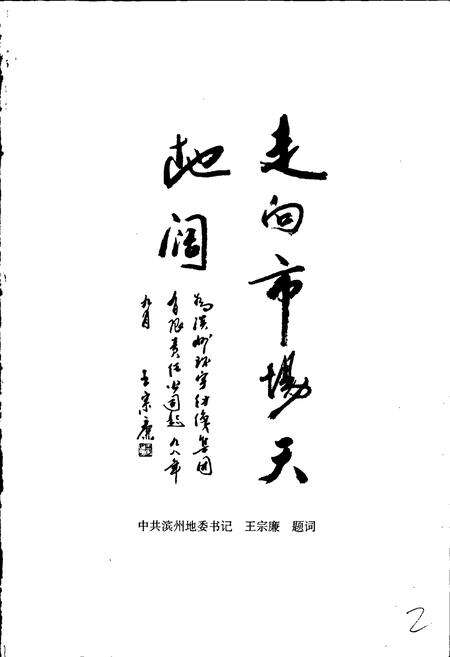 走向市场天
地阔
为滨州环宇纺织集团
有限责任公司题 九八年
九月 王宗廉
中共滨州地委书记 王宗廉 题词
2